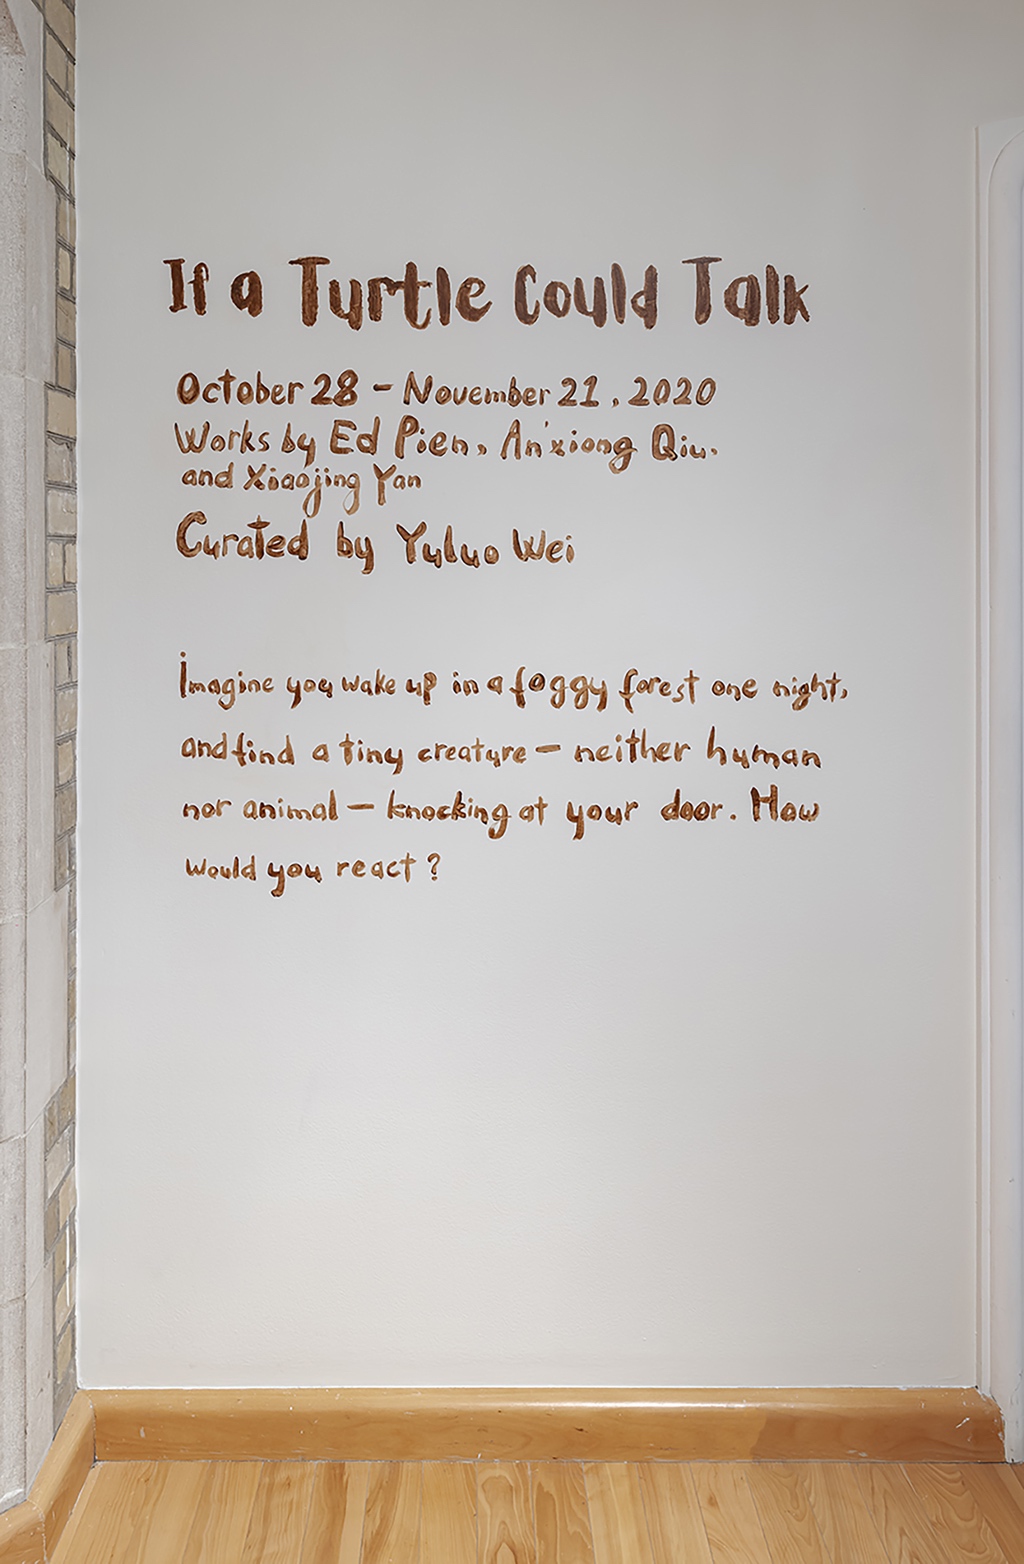 If a Turtle Could Talk
October 28 – November 21, 2020
Works by Ed Pien, An'xiong Qiu,
and Xiaojing Yan
Curated by Yuluo Wei
Imagine you wake up in a foggy forest one night,
and find a tiny creature – neither human
nor animal – knocking at your door. How
would you react?